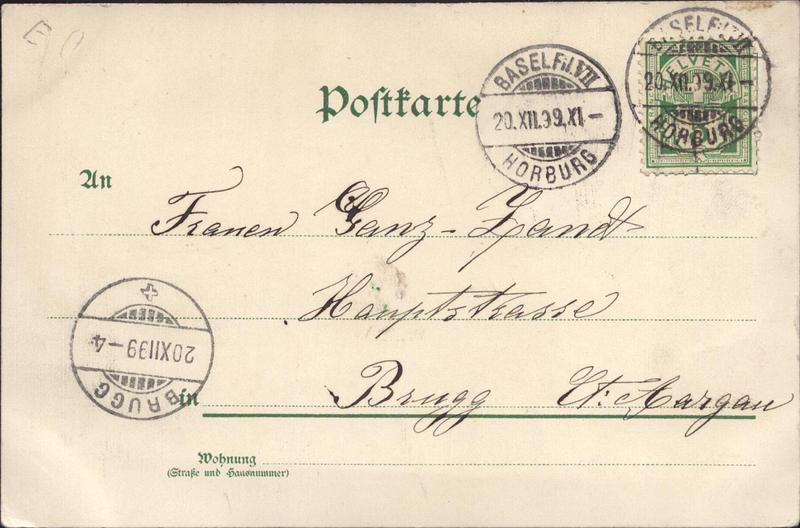 BASEL Fil. VII
20.XII.99.XI-
HORBURG
BASEL Fil. VII
20.XII.99.XI-
HORBURG
HELVETIA
Postkarte
An
Frauen Ganz-Zandt
Hauptstrasse
in Brugg Ct: Aargau
BRUGG
20 XII 99-4
Wohnung
(Straße und Hausnummer)